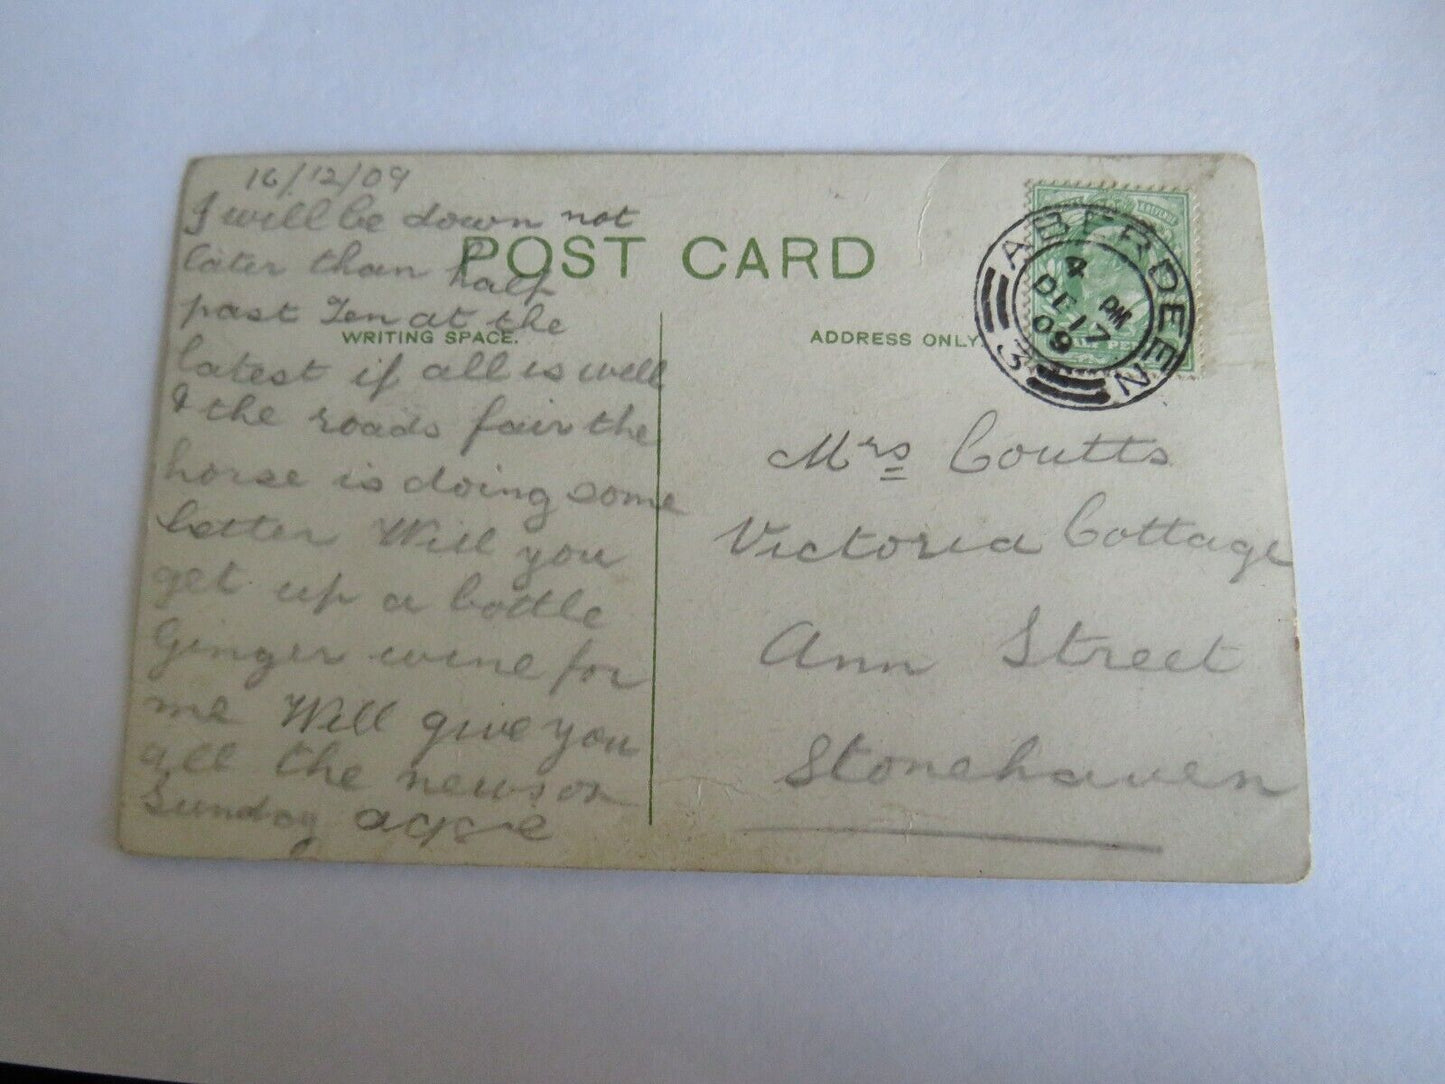 16/12/09
I will be down not
later than half
past Ten at the
latest if all is well
& the roads fair the
horse is doing some
better Will you
get up a bottle
Ginger wine for
me Will give you
all the news on
Sunday
POST CARD
WRITING SPACE.
ADDRESS ONLY.
ABERDEEN
4 PM
DE 17
09
3
Mrs Coutts
Victoria Cottage
Ann Street
Stonehaven